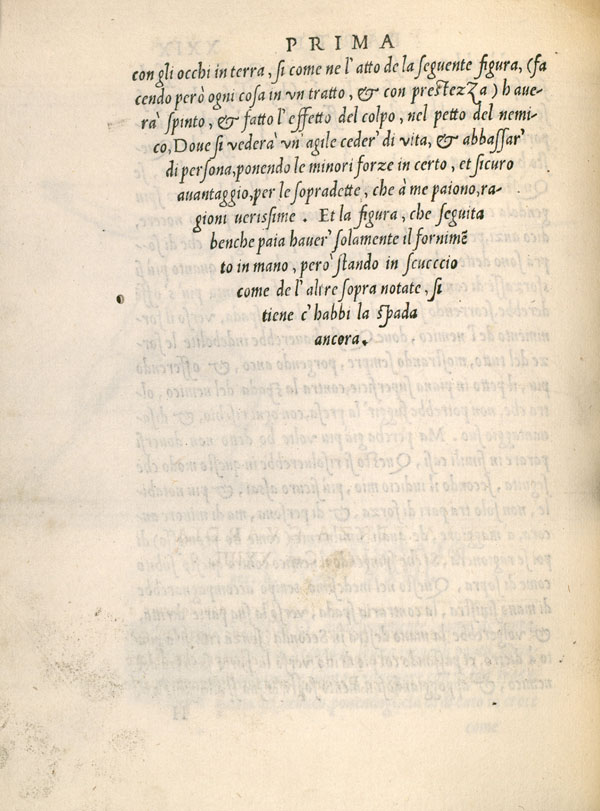 PRIMA
con gli occhi in terra, ſi come ne l'atto de la ſeguente figura, (fa
cendo però ogni coſa in vn tratto, & con preſtezza) haue-
rà ſpinto, & fatto l'effetto del colpo, nel petto del nemi-
co, Doue ſi vederà vn'agile ceder' di vita, & abbaſſar'
di perſona, ponendo le minori forze in certo, et ſicuro
auantaggio, per le ſopradette, che à me paiono, ra-
gioni ueriſsime. Et la figura, che ſeguita
benche paia hauer' ſolamente il fornimẽ
to in mano, però ſtando in ſcuccio
come de l'altre ſopra notate, ſi
tiene c'habbi la ſpada
ancora.